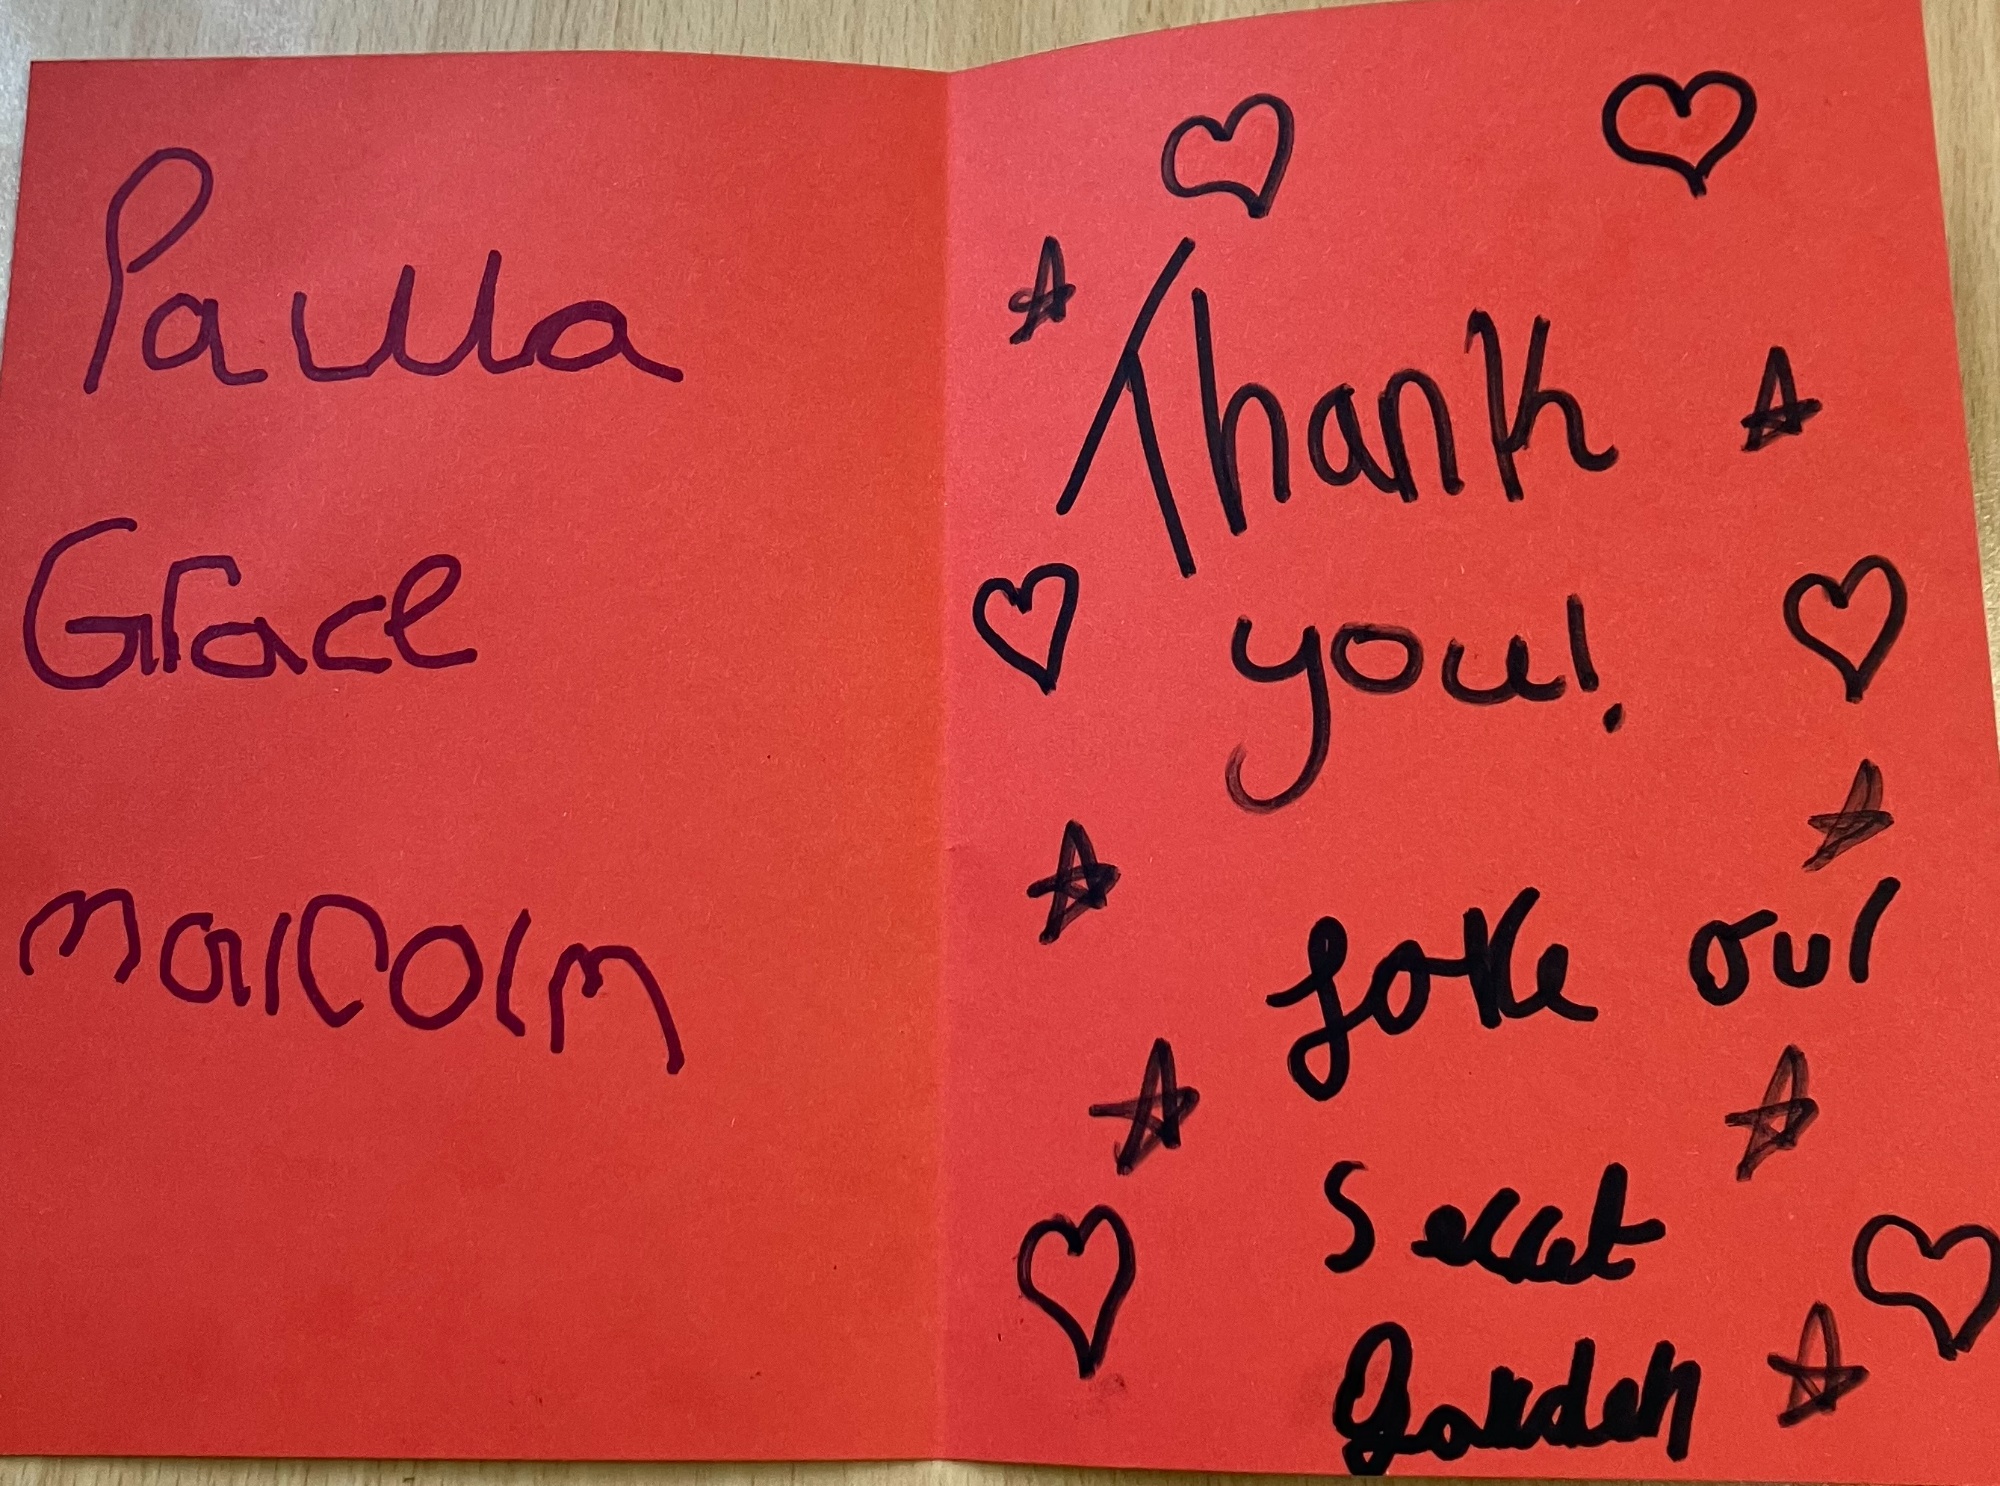 Paula
Grace
malcolm
Thank
you!
for our
Secret
Garden